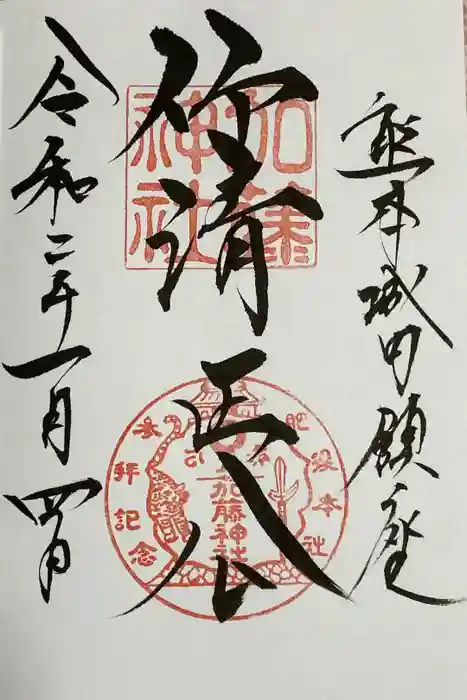 熊本城内鎮座
仰清正公
令和二年一月四日
加藤
神社
肥後本社
参拝記念
加藤神社